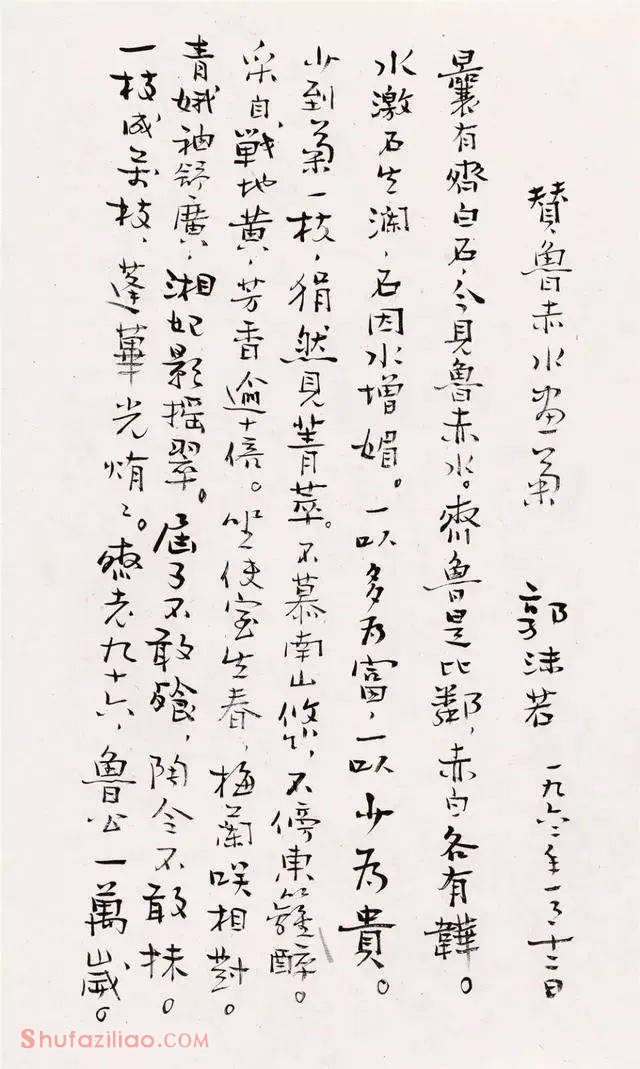 赞鲁赤水画菊 郭沫若 一九六二年一月十二日
曩有齊白石,今見魯赤水。齊魯是比鄰,赤白各有韡。
水激石生瀾,石因水增媚。一以多为富,一以少为貴。
少到菊一枝,狷然見菁萃。不慕南山悠,不傍東籬醉。
采自戰地黄,芳香逾十倍。坐使室生春,梅蘭咲相對。
青娥袖舒廣,湘妃影摇翠。屈子不敢飱,陶令不敢抹。
一枝成万枝,蓬蓽光煟々。齊老九十六,魯公一萬歲。
Shufaziliao.com